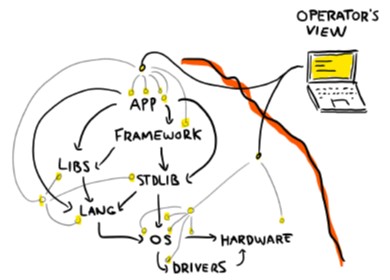 OPERATOR'S
VIEW
APP
FRAMEWORK
LIBS
STDLIB
LANG
OS
HARDWARE
DRIVERS